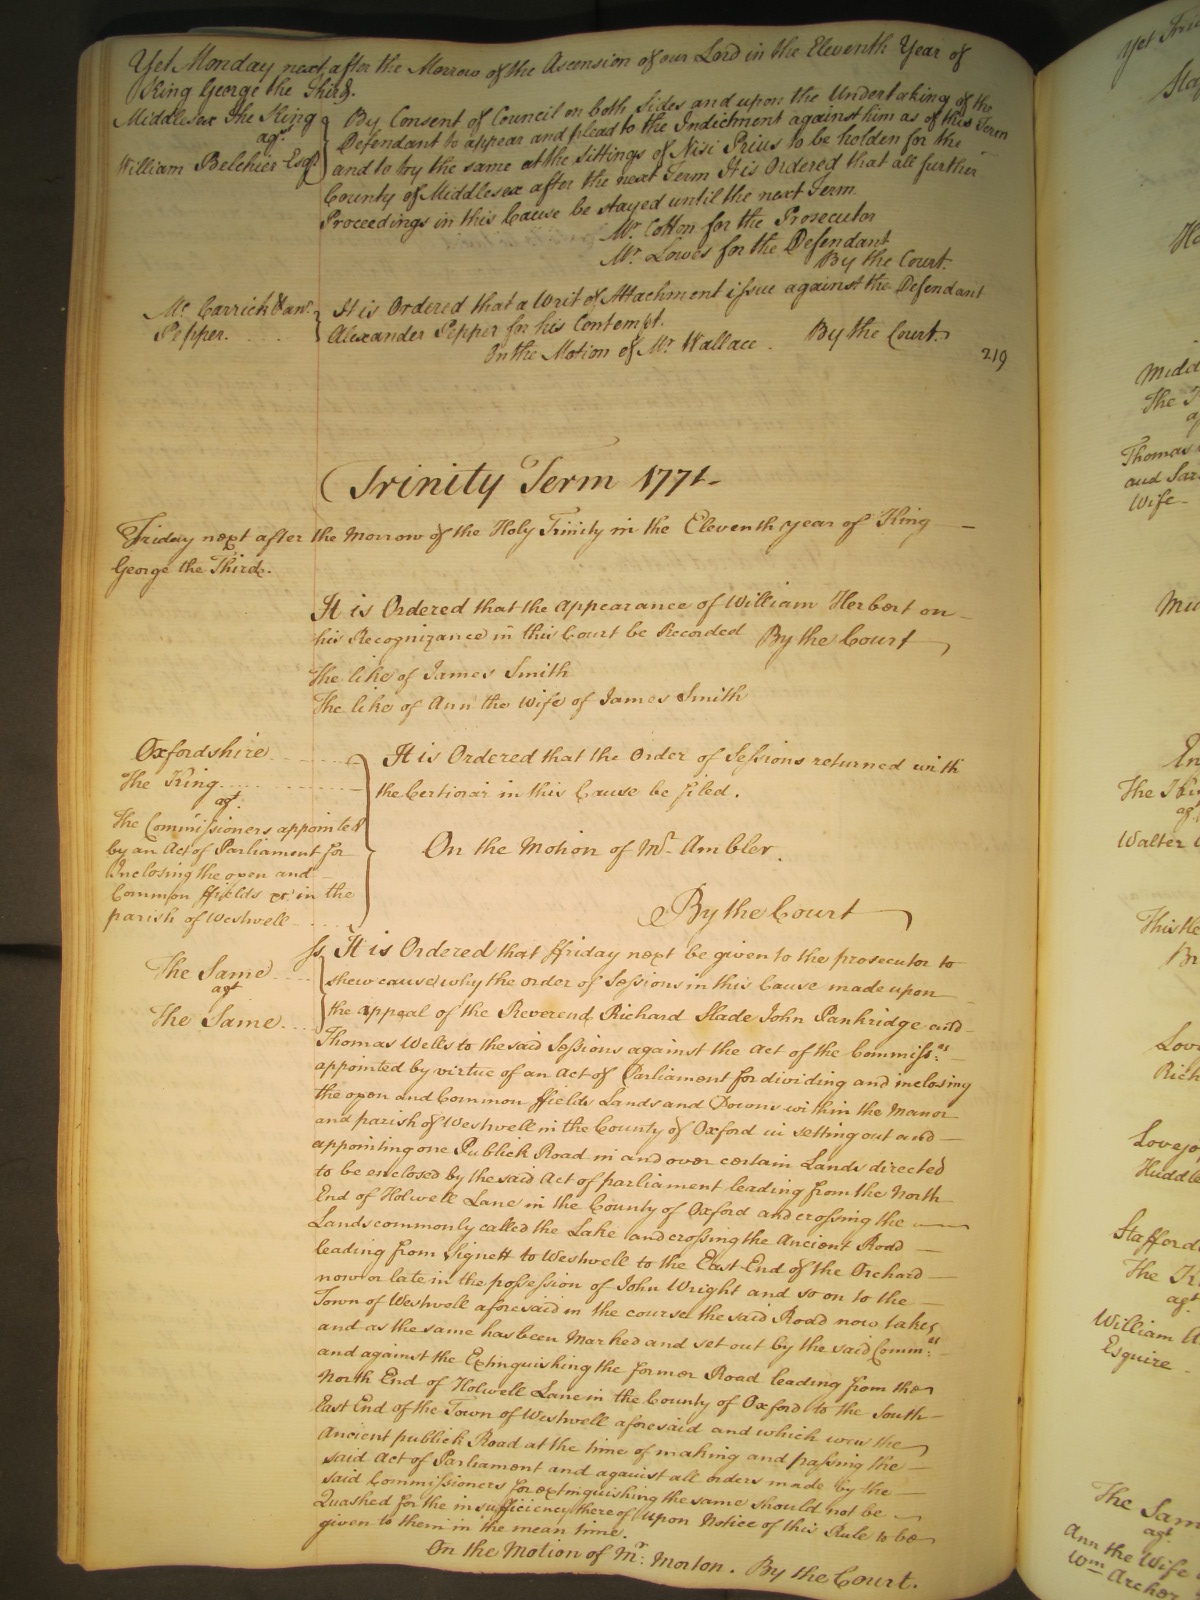 Yet Monday next after the Morrow of the Ascension of our Lord in the Eleventh Year of
King George the Third.
Middlesex The King
agt
William Belchier Esqr
By Consent of Council on both Sides and upon the Undertaking of the
Defendant to appear and plead to the Indictment against him as of this Term
and to try the same at the Sittings of Nisi Prius to be holden for the
County of Middlesex after the next Term It is Ordered that all further
Proceedings in this Cause be stayed until the next Term.
Mr. Cotton for the Prosecutor
Mr. Lowes for the Defendant
By the Court.
Mc. Carrick & anr.
Pepper.
It is Ordered that a Writ of Attachment issue against the Defendant
Alexander Pepper for his Contempt.
On the Motion of Mr. Wallace. By the Court.
219
Trinity Term 1771.
Friday next after the Morrow of the Holy Trinity in the Eleventh year of King
George the Third.
It is Ordered that the appearance of William Herbert on
his Recognizance in this Court be Recorded By the Court
The like of James Smith
The like of Ann the Wife of James Smith
Oxfordshire
The King
agt.
The Commissioners appointed
by an Act of Parliament for
Inclosing the open and
Common ffields &c. in the
parish of Westwell
It is Ordered that the Order of Sessions returned with
the Certiorari in this Cause be filed.
On the Motion of Mr. Ambler.
By the Court
The Same
agt
The Same
ss. It is Ordered that ffriday next be given to the prosecutor to
shew cause why the order of Sessions in this Cause made upon
the appeal of the Reverend Richard Slade John Pankridge and
Thomas Wells to the said Sessions against the Act of the Commissrs.
appointed by virtue of an Act of Parliament for dividing and inclosing
the open and Common ffields Lands and Downs within the Manor
and parish of Westwell in the County of Oxford in setting out and
appointing one Publick Road in and over certain Lands directed
to be enclosed by the said Act of parliament leading from the North
End of Holwell Lane in the County of Oxford and crossing the
Lands commonly called the Lake and crossing the Ancient Road
leading from Signett to Westwell to the East End of the Orchard
now or late in the possession of John Wright and so on to the
Town of Westwell aforesaid in the course the said Road now takes
and as the same has been Marked and set out by the said Commrs.
and against the Extinguishing the former Road leading from the
North End of Holwell Lane in the County of Oxford to the South
East End of the Town of Westwell aforesaid and which was the
Ancient publick Road at the time of making and passing the
said Act of Parliament and against all orders made by the
said Commissioners for extinguishing the same should not be
Quashed for the insufficiency thereof upon Notice of this Rule to be
given to them in the mean time.
On the Motion of Mr. Morton. By the Court.
The
Thomas
and
Wife
The
agt
Walter
The
agt
William
Esquire
The
agt
Ann the Wife
Wm Archer